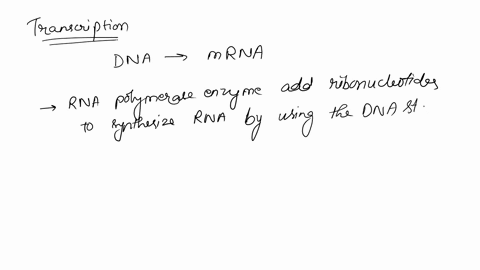 Transcription
DNA → mRNA
→ RNA polymerase enzyme add ribonucleotides
to synthesize RNA by using the DNA st.